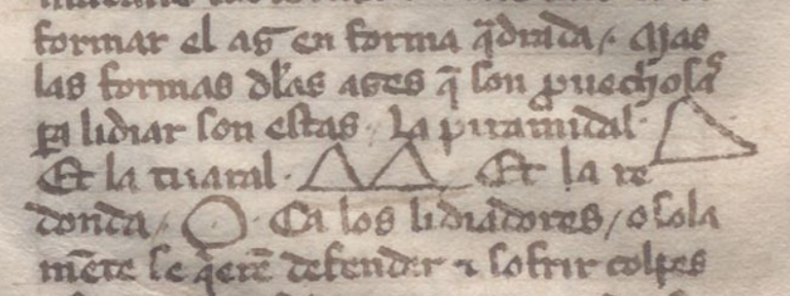 formar el aȝ en forma q̄drada /. Mas
las formas dl̄as aȝes q̄ son ꝓuechosas
ꝑa lidiar son estas. La piramidal.
Et la tuaral. Et la re
donda /. Ca los lidiadores / o sola
mēte se q̄erē defender ⁊ sofrir colpes